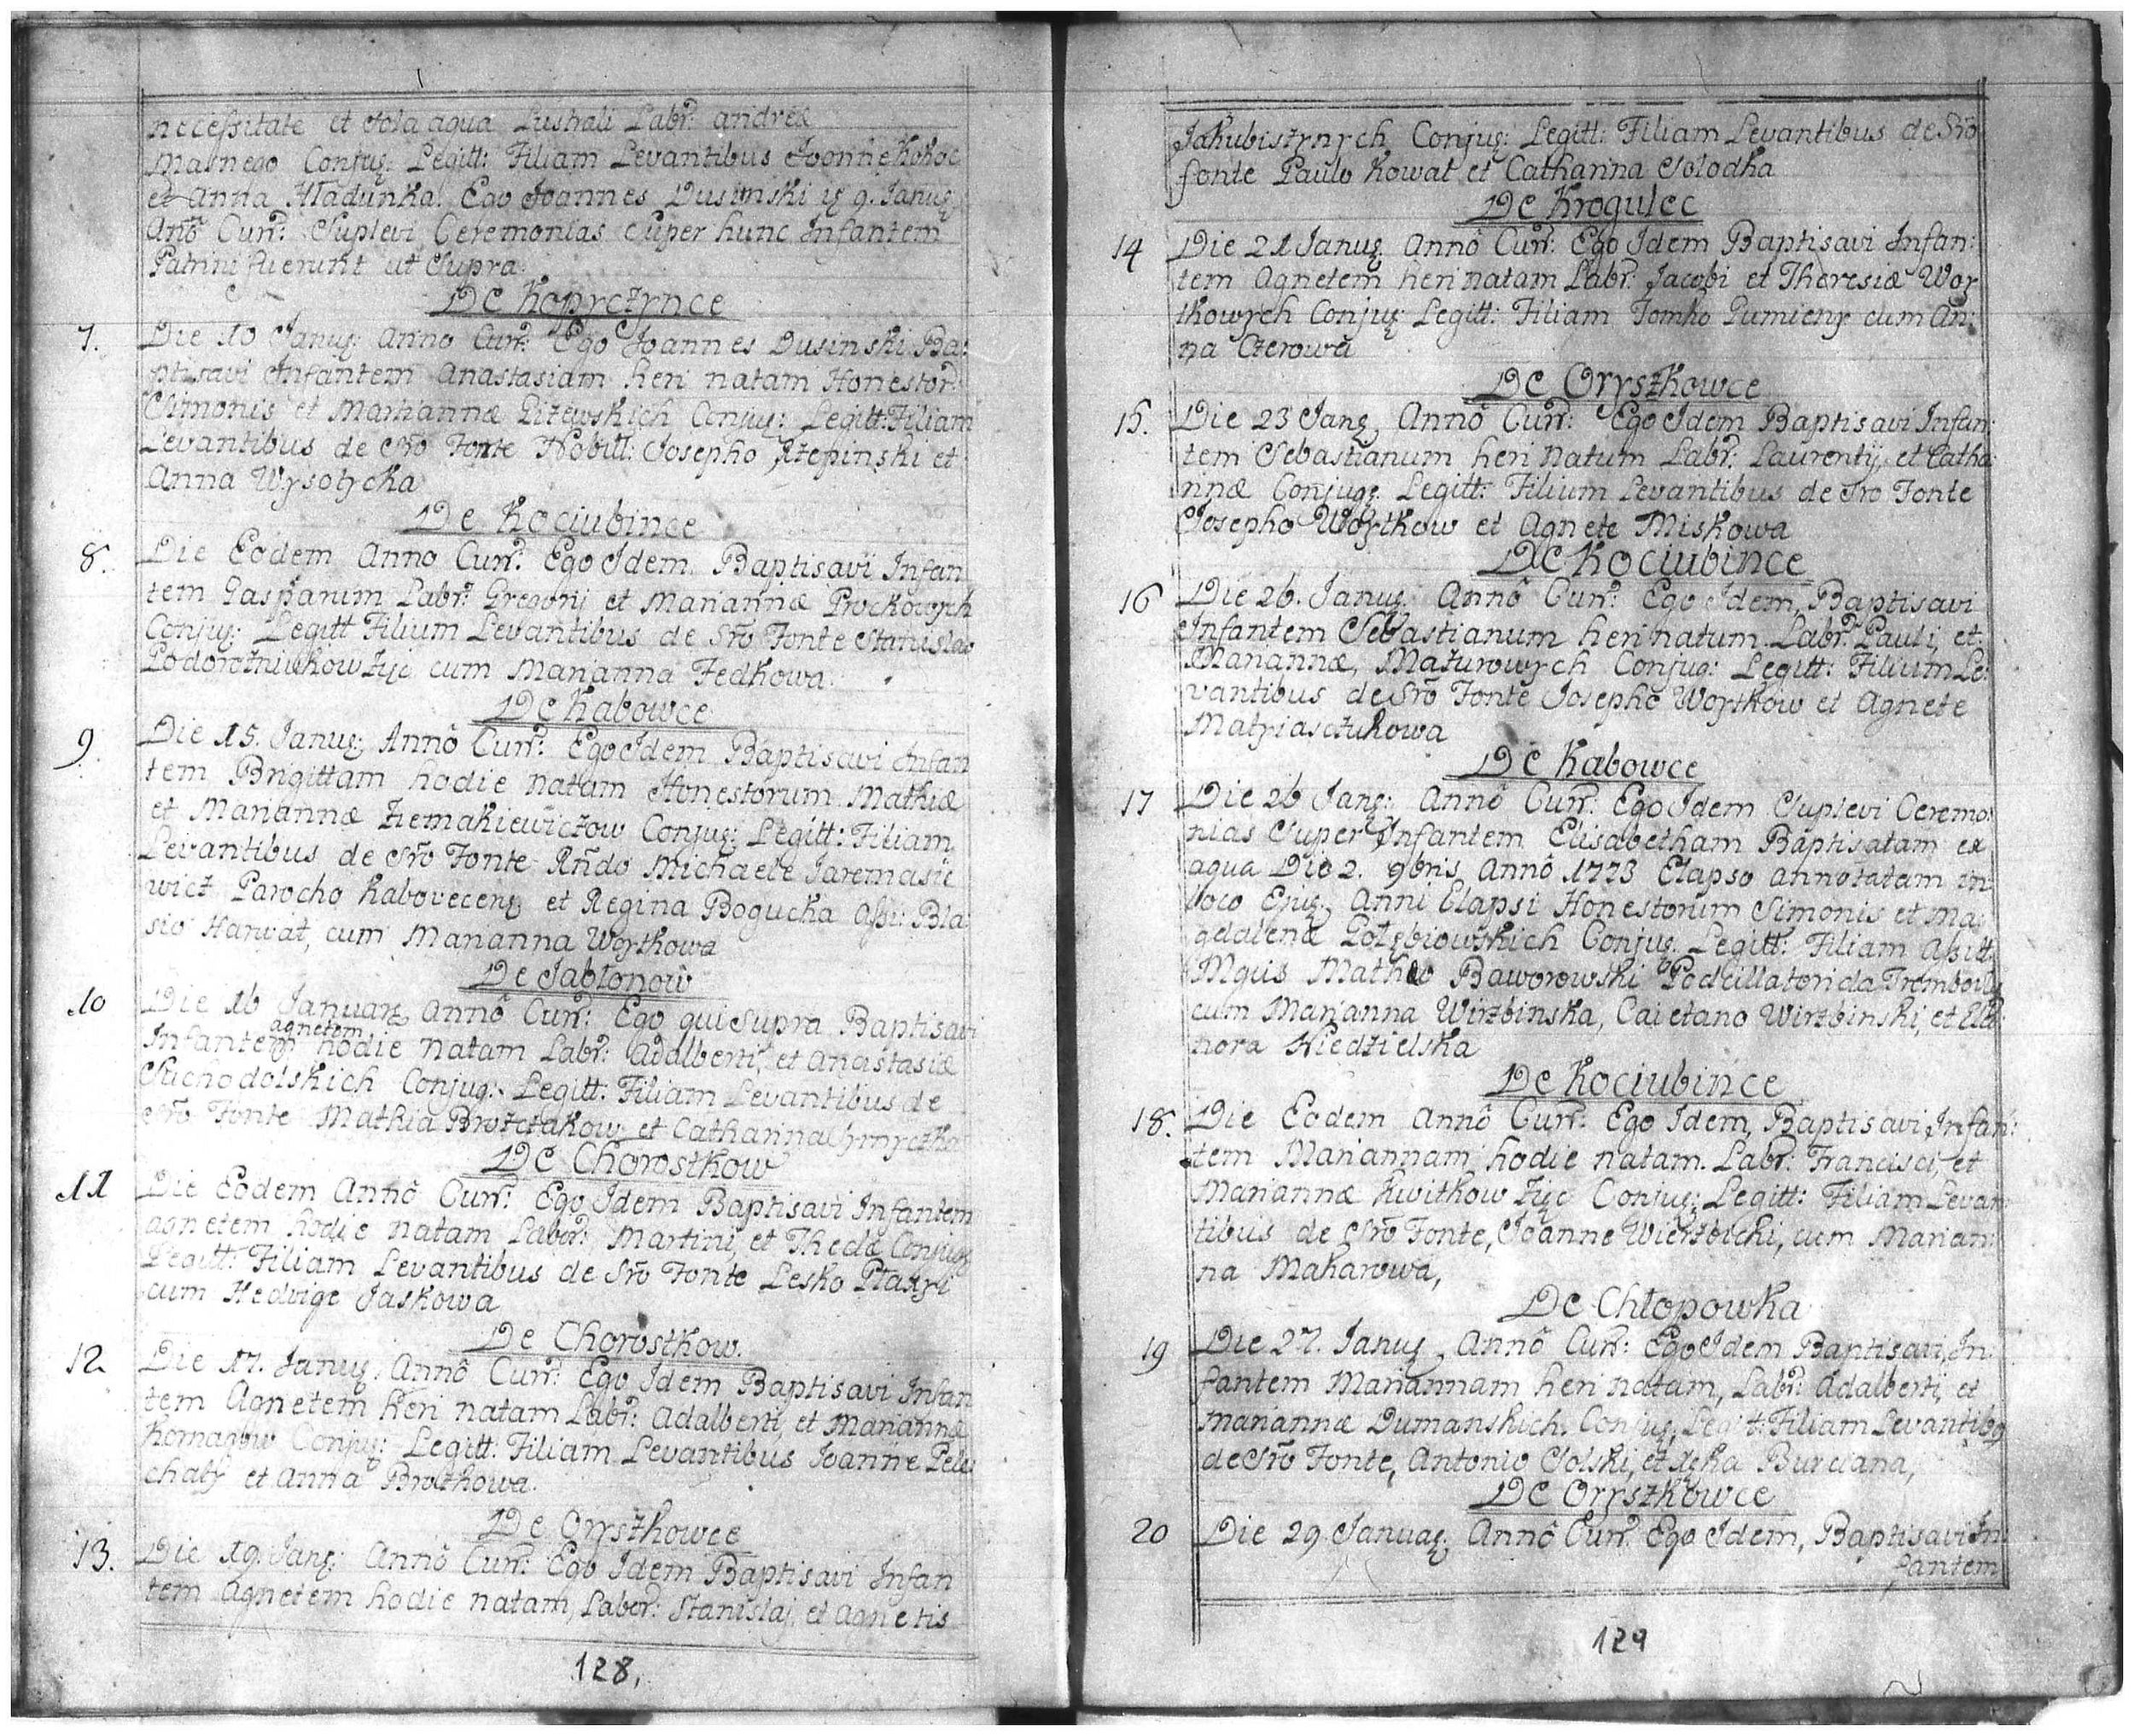 necessitate et sola aqua Lustrali Labr: andreæ
Marnego Conjug: Legitt: Filiam Levantibus Joanne Kokoc
et Anna Hladunka. Ego Joannes Dusinski 9. Janus
Anō Curr: Suplevi Ceremonias Super hunc Infantem
Patrini fuerunt ut Supra.
De Kopyczynce
7. Die 10 Janus: Anno Curr: Ego Joannes Dusinski Ba:
ptisavi Infantem Anastasiam heri natam Honestor:
Simonis et Mariannæ Gizewskich Conjug: Legitt: Filiam
Levantibus de Sr̃o Fonte Nobill: Josepho Rzepinski et
Anna Wysotzcka
De Kociubince
8. Die Eodem Anno Curr: Ego Idem Baptisavi Infan
tem Gasparum Labr: Gregorij et Mariannæ Prockowych
Conjug: Legitt Filium Levantibus de Sr̃o Fonte Stanislao
cum Marianna Fedkowa.
De Kabowce
9. Die 15. Janus; Annô Curr: Ego Idem Baptisavi Infan
tem Brigittam hodie natam Honestorum Mathiæ
et Mariannæ Ziemakiewiczow Conjug: Legitt: Filiam
Levantibus de Sr̃o Fonte Rñdo Michaele Jaremasie
wicz Parocho Kabovecens et Regina Bogucka Assi: Bla:
sio Harwat, cum Marianna Woytkowa
De Jabłonow
10 Die 16 Januar, Annô Curr: Ego qui Supra Baptisavi
agnetem
Infantem hodie natam Labr: Adalberti, et Anastasiæ
Suchodolskich Conjug: Legitt: Filiam Levantibus de
Sr̃o Fonte Mathia et Catharina
De Chorostkow
11 Die Eodem Annô Curr: Ego Idem Baptisavi Infantem
agnetem hodie natam Labor: Martini, et Theclæ Conjug
Legitt: Filiam Levantibus de Sr̃o Fonte Lesko Ptaszi
cum Hedvige Jaskowa
De Chorostkow.
12 Die 17. Janus, Annô Curr: Ego Idem Baptisavi Infan
tem Agnetem heri natam Labr: Adalberti, et Mariannæ
Komarow Conjug: Legitt: Filiam Levantibus Joanne Pele
chaty et Anna Brozkowa.
De Oryszkowce
13. Die 19. Jang: Annô Curr: Ego Idem Baptisavi Infan
tem Agnetem hodie natam, Labor: Stanislaj, et Agnetis
128.
Jakubistznych Conjug: Legitt: Filiam Levantibus de Sr̃o
fonte Paulo Kowal et Catharina Solodka
De Krogulec
14 Die 21 Janus, Annô Curr: Ego Idem Baptisavi Infan:
tem Agnetem heri natam Labr: Jacobi et Theresiæ Woy
tkowych Conjug: Legitt: Filiam Tomko Gumieny cum An:
na Czerowa
De Oryszkowce
15. Die 23 Jang, Annô Curr: Ego Idem Baptisavi Infan:
tem Sebastianum heri natum Labr: Laurentij, et Catha
rinæ Conjugg. Legitt: Filium Levantibus de Sr̃o Fonte
Josepho Woytkow et Agnete Miskowa
De Kociubince
16 Die 26. Janus. Annô Curr: Ego Idem, Baptisavi
Infantem Sebastianum heri natum Labr: Pauli, et
Mariannæ, Mazurowych Conjug: Legitt: Filium Le:
vantibus de Sr̃o Fonte Josepho Woytkow et Agnete
Matyiasczukowa
De Kabowce
17 Die 26 Jang: Annô Curr: Ego Idem Suplevi Ceremo:
nias Super Infantem Elisabetham Baptisatam ex
aqua Die 2. 9bris Annô 1773 Elapso annotatam in
loco Ejus, Anni Elapsi Honestorum Simonis et Ma:
gdalenæ Gołębiowskich Conjug. Legitt: Filiam Assitt:
Mgcis Matheo Baworowski
cum Marianna Wirzbinska, Caietano Wirzbinski, et Eleo
nora Niedzielska
De Kociubince
18. Die Eodem Annô Curr: Ego Idem, Baptisavi Infan:
tem Mariannam hodie natam. Labr: Francisci, et
Mariannæ Kwitkow Zyc Conjug: Legitt: Filiam Levan
tibus de Sr̃o Fonte, Joanne Wierzbicki, cum Marian:
na Makarowa,
De Chłopowka
19 Die 27. Janus, Annô Curr: Ego Idem Baptisavi, In:
fantem Mariannam heri natam, Labr: Adalberti, et
Mariannæ Dumanskich. Conjug, Legitt: Filiam Levantibq
de Sr̃o Fonte, Antonio Solski, et Burciana,
De Oryszkowce
20 Die 29 Januag, Annô Curr: Ego Idem, Baptisavi In:
fantem
129